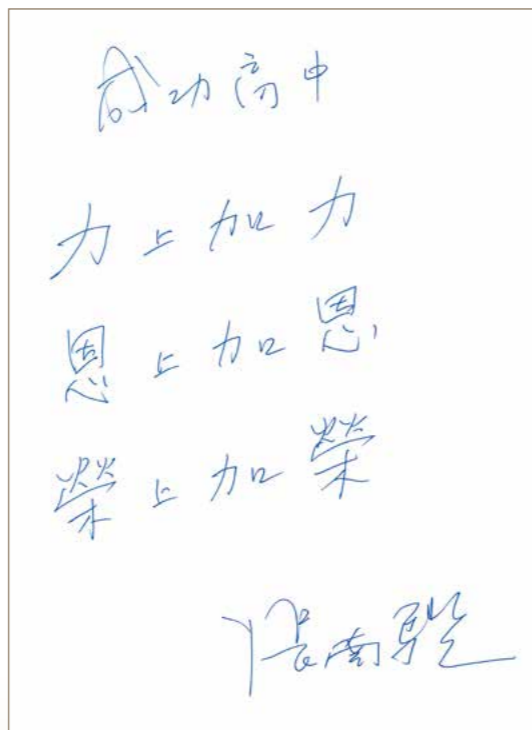 成功高中
力上加力
恩上加恩
榮上加榮
張南驥